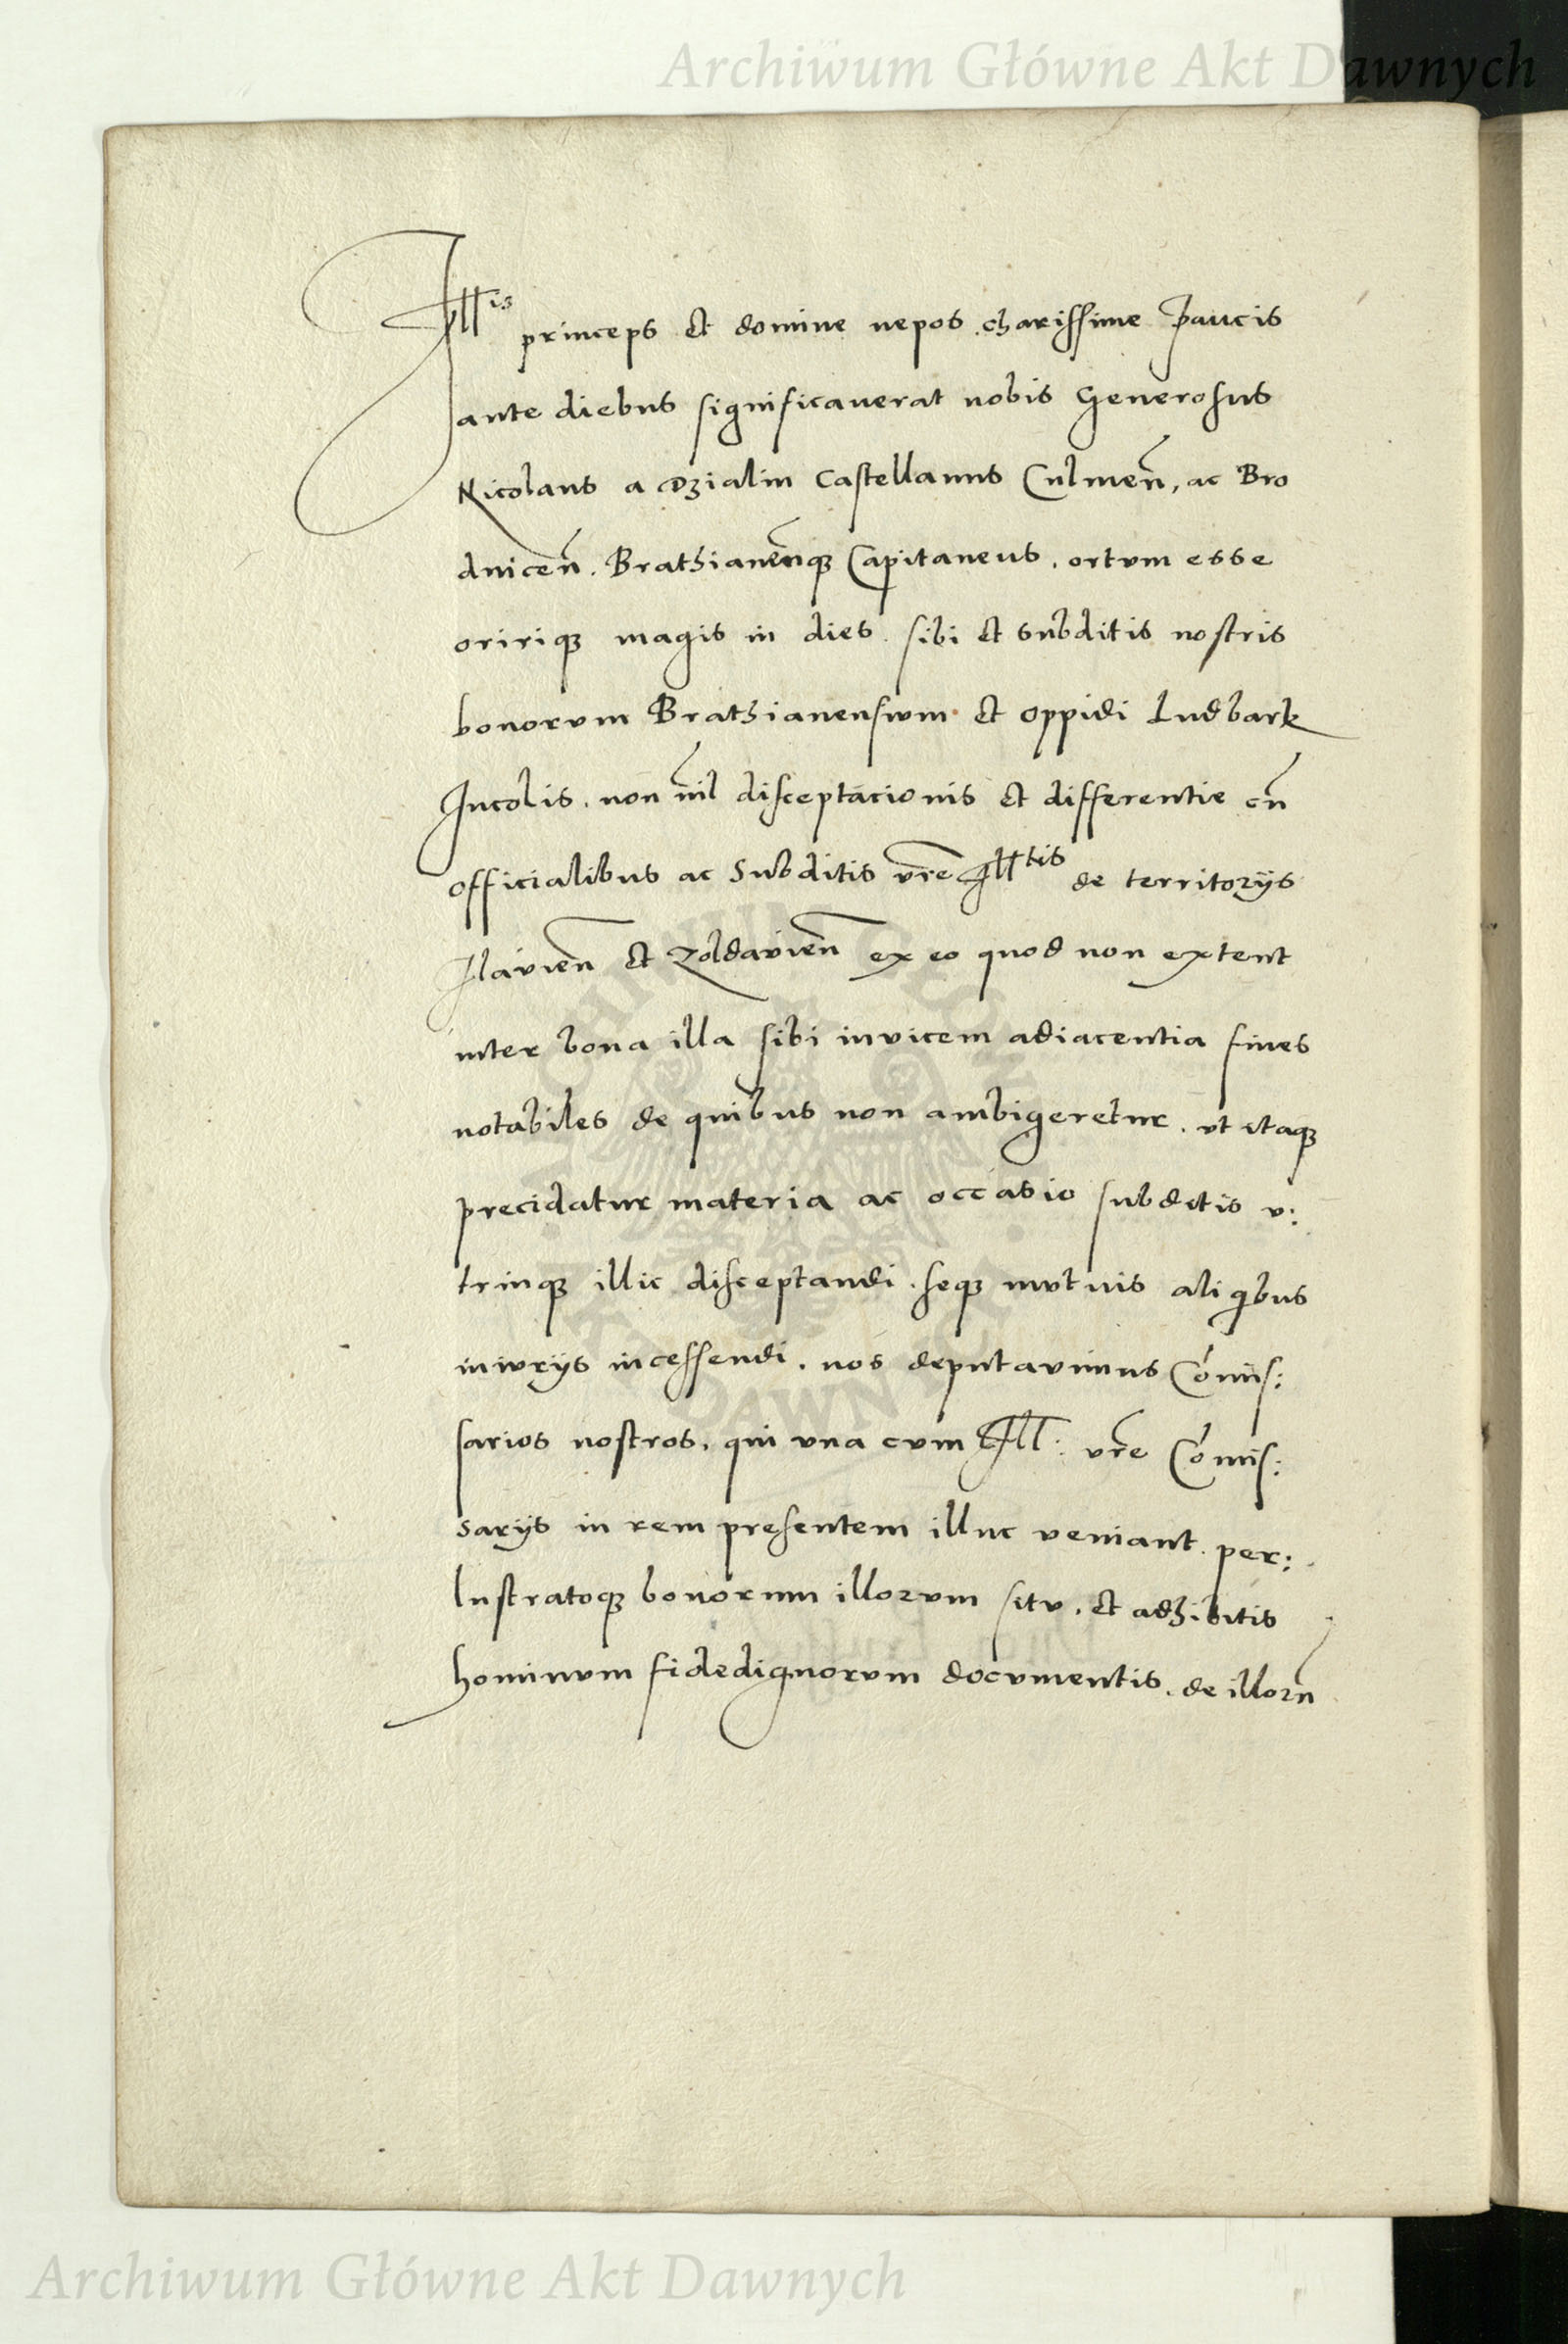 Archiwum Główne Akt Dawnych
Illis princeps et domine nepos charissime Paucis
ante diebus significaverat nobis Generosus
Nicolaus a Dzialin Castellanus Culmen̄, ac Bro
dnicen̄. Brathianen̄q₃ Capitaneus. ortvm esse
oririq₃ magis in dies. sibi et subditis nostris
bonorvm Brathianensivm et oppidi Ludbark
Incolis. non nīl disceptacionis et differentie cū
officialibus ac Subditis vr̄e Illtis de territorijs
Ilavien̄ et Zoldavien̄ ex eo quod non extent
inter bona illa sibi invicem adiacentia fines
notabiles de quibus non ambigeretur. vt itaq₃
precidatur materia ac occasio subditis v:
trinq₃ illic disceptandi. seq₃ mvtuis aliq̄bus
inivrijs incessendi. nos deputavimus Cōmis:
sarios nostros, qui vna cvm Ill: vr̄e Cōmis:
sarijs in rem presentem illuc veniant. per:
lustratoq₃ bonorum illorvm sitv. et adhibitis
hominvm fidedignorvm docvmentis. de illorū
Archiwum Główne Akt Dawnych